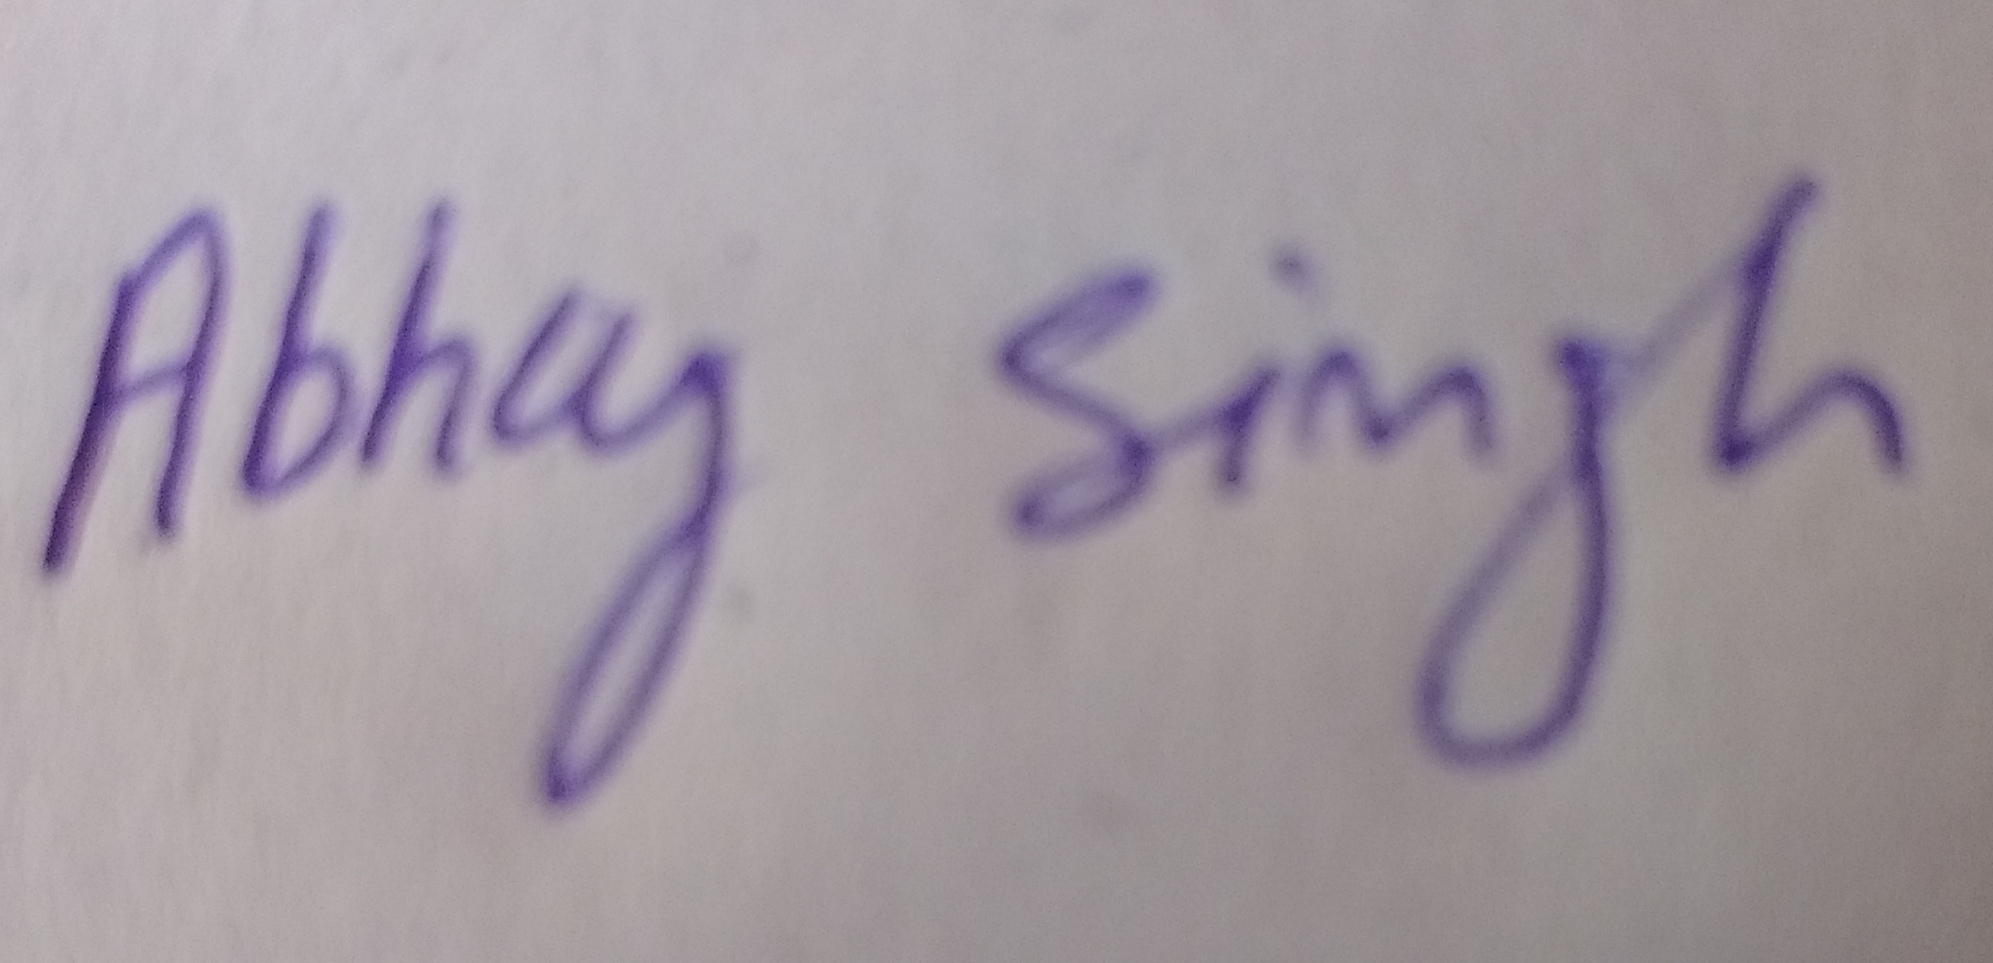 Abhay Singh